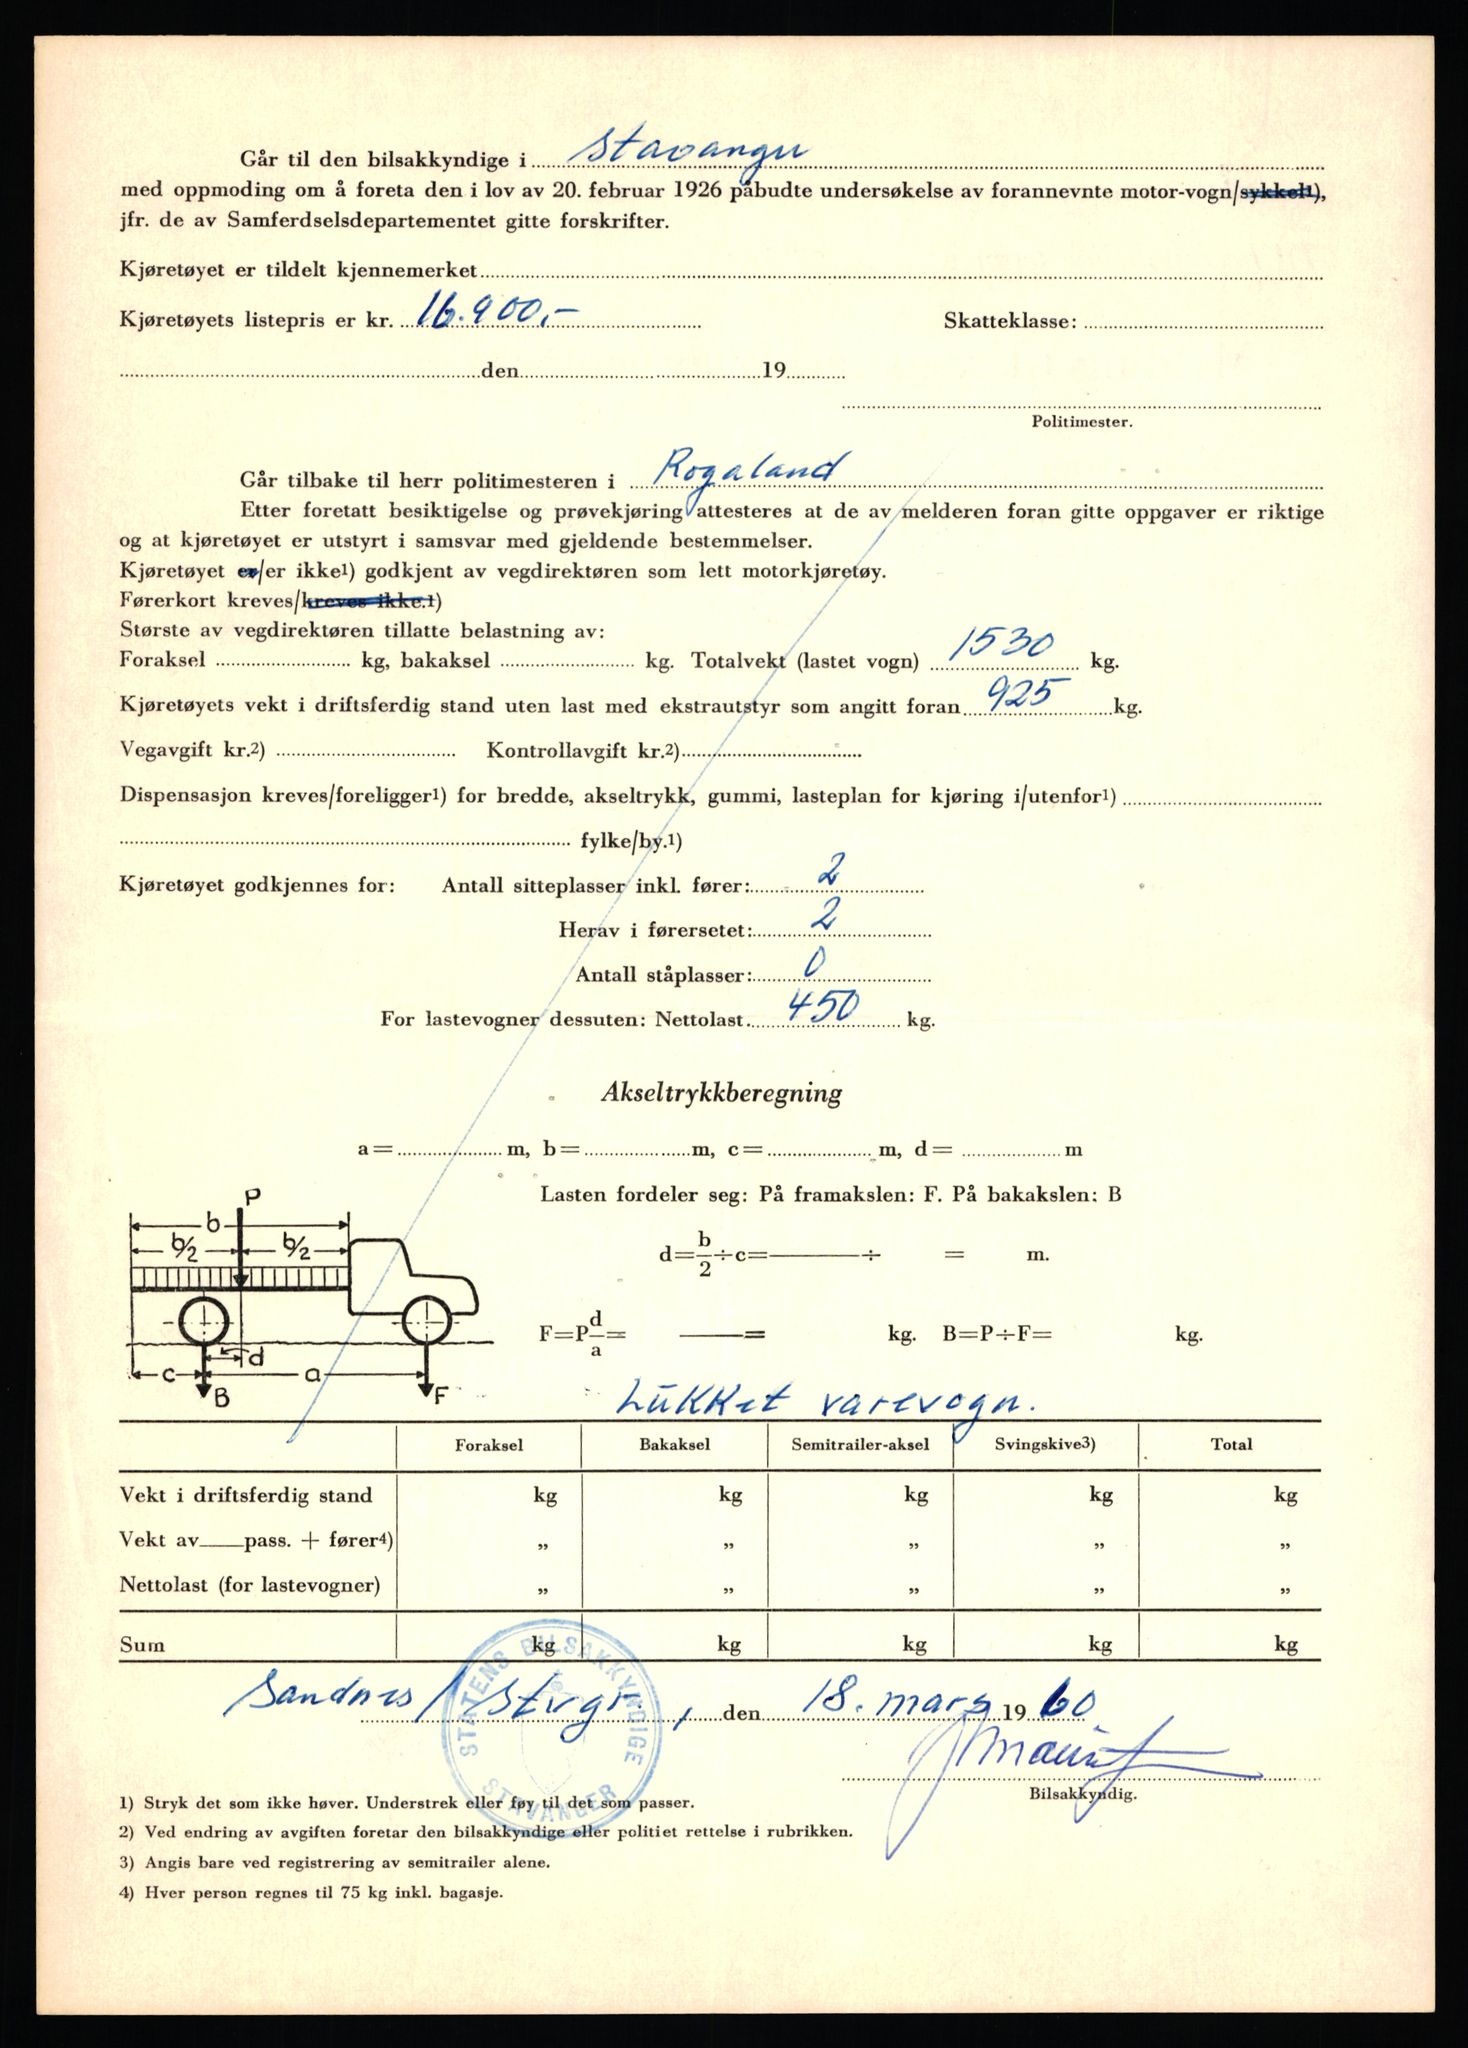 Går til den bilsakkyndige i Stavanger
med oppmoding om å foreta den i lov av 20. februar 1926 påbudte undersøkelse av forannevnte motor-vogn/sykkel1),
jfr. de av Samferdselsdepartementet gitte forskrifter.
Kjøretøyet er tildelt kjennemerket
Kjøretøyets listepris er kr. 16.900,- Skatteklasse:
den 19
Politimester.
Går tilbake til herr politimesteren i Rogaland
Etter foretatt besiktigelse og prøvekjøring attesteres at de av melderen foran gitte oppgaver er riktige
og at kjøretøyet er utstyrt i samsvar med gjeldende bestemmelser.
Kjøretøyet er/er ikke1) godkjent av vegdirektøren som lett motorkjøretøy.
Førerkort kreves/kreves ikke.1)
Største av vegdirektøren tillatte belastning av:
Foraksel kg, bakaksel kg. Totalvekt (lastet vogn) 1530 kg.
Kjøretøyets vekt i driftsferdig stand uten last med ekstrautstyr som angitt foran 925 kg.
Vegavgift kr.2) Kontrollavgift kr.2)
Dispensasjon kreves/foreligger1) for bredde, akseltrykk, gummi, lasteplan for kjøring i/utenfor1)
fylke/by.1)
Kjøretøyet godkjennes for: Antall sitteplasser inkl. fører: 2
Herav i førersetet: 2
Antall ståplasser: 0
For lastevogner dessuten: Nettolast 450 kg.
Akseltrykkberegning
a= m, b= m, c= m, d= m
Lasten fordeler seg: På framakslen: F. På bakakslen: B
d=b/2÷c= ÷ = m.
F=P d/a= = kg. B=P÷F= kg.
P
b
b/2 b/2
d
c a
B F
Lukket varevogn.
Foraksel Bakaksel Semitrailer-aksel Svingskive3) Total
Vekt i driftsferdig stand kg kg kg kg kg
Vekt av pass. + fører4) „ „ „ „ „
Nettolast (for lastevogner) „ „ „ „ „
Sum kg kg kg kg kg
STATENS BILSAKKYNDIGE
STAVANGER
Sandnes / Stvgr., den 18. mars 1960
Bilsakkyndig.
1) Stryk det som ikke høver. Understrek eller føy til det som passer.
2) Ved endring av avgiften foretar den bilsakkyndige eller politiet rettelse i rubrikken.
3) Angis bare ved registrering av semitrailer alene.
4) Hver person regnes til 75 kg inkl. bagasje.